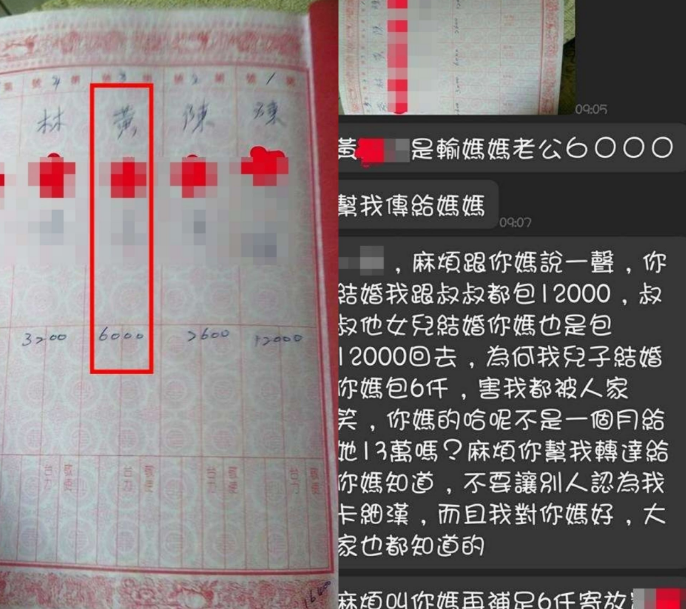 林
黃
陳
陳
3200
6000
2600
12000
09:05
黃 是輸媽媽老公6000
幫我傳給媽媽
09:07
，麻煩跟你媽說一聲，你
結婚我跟叔叔都包12000，叔
叔他女兒結婚你媽也是包
12000回去，為何我兒子結婚
你媽包6仟，害我都被人家
笑，你媽的哈呢不是一個月給
她13萬嗎？麻煩你幫我轉達給
你媽知道，不要讓別人認為我
卡細漢，而且我對你媽好，大
家也都知道的
麻煩叫你媽再補足6仟寄放